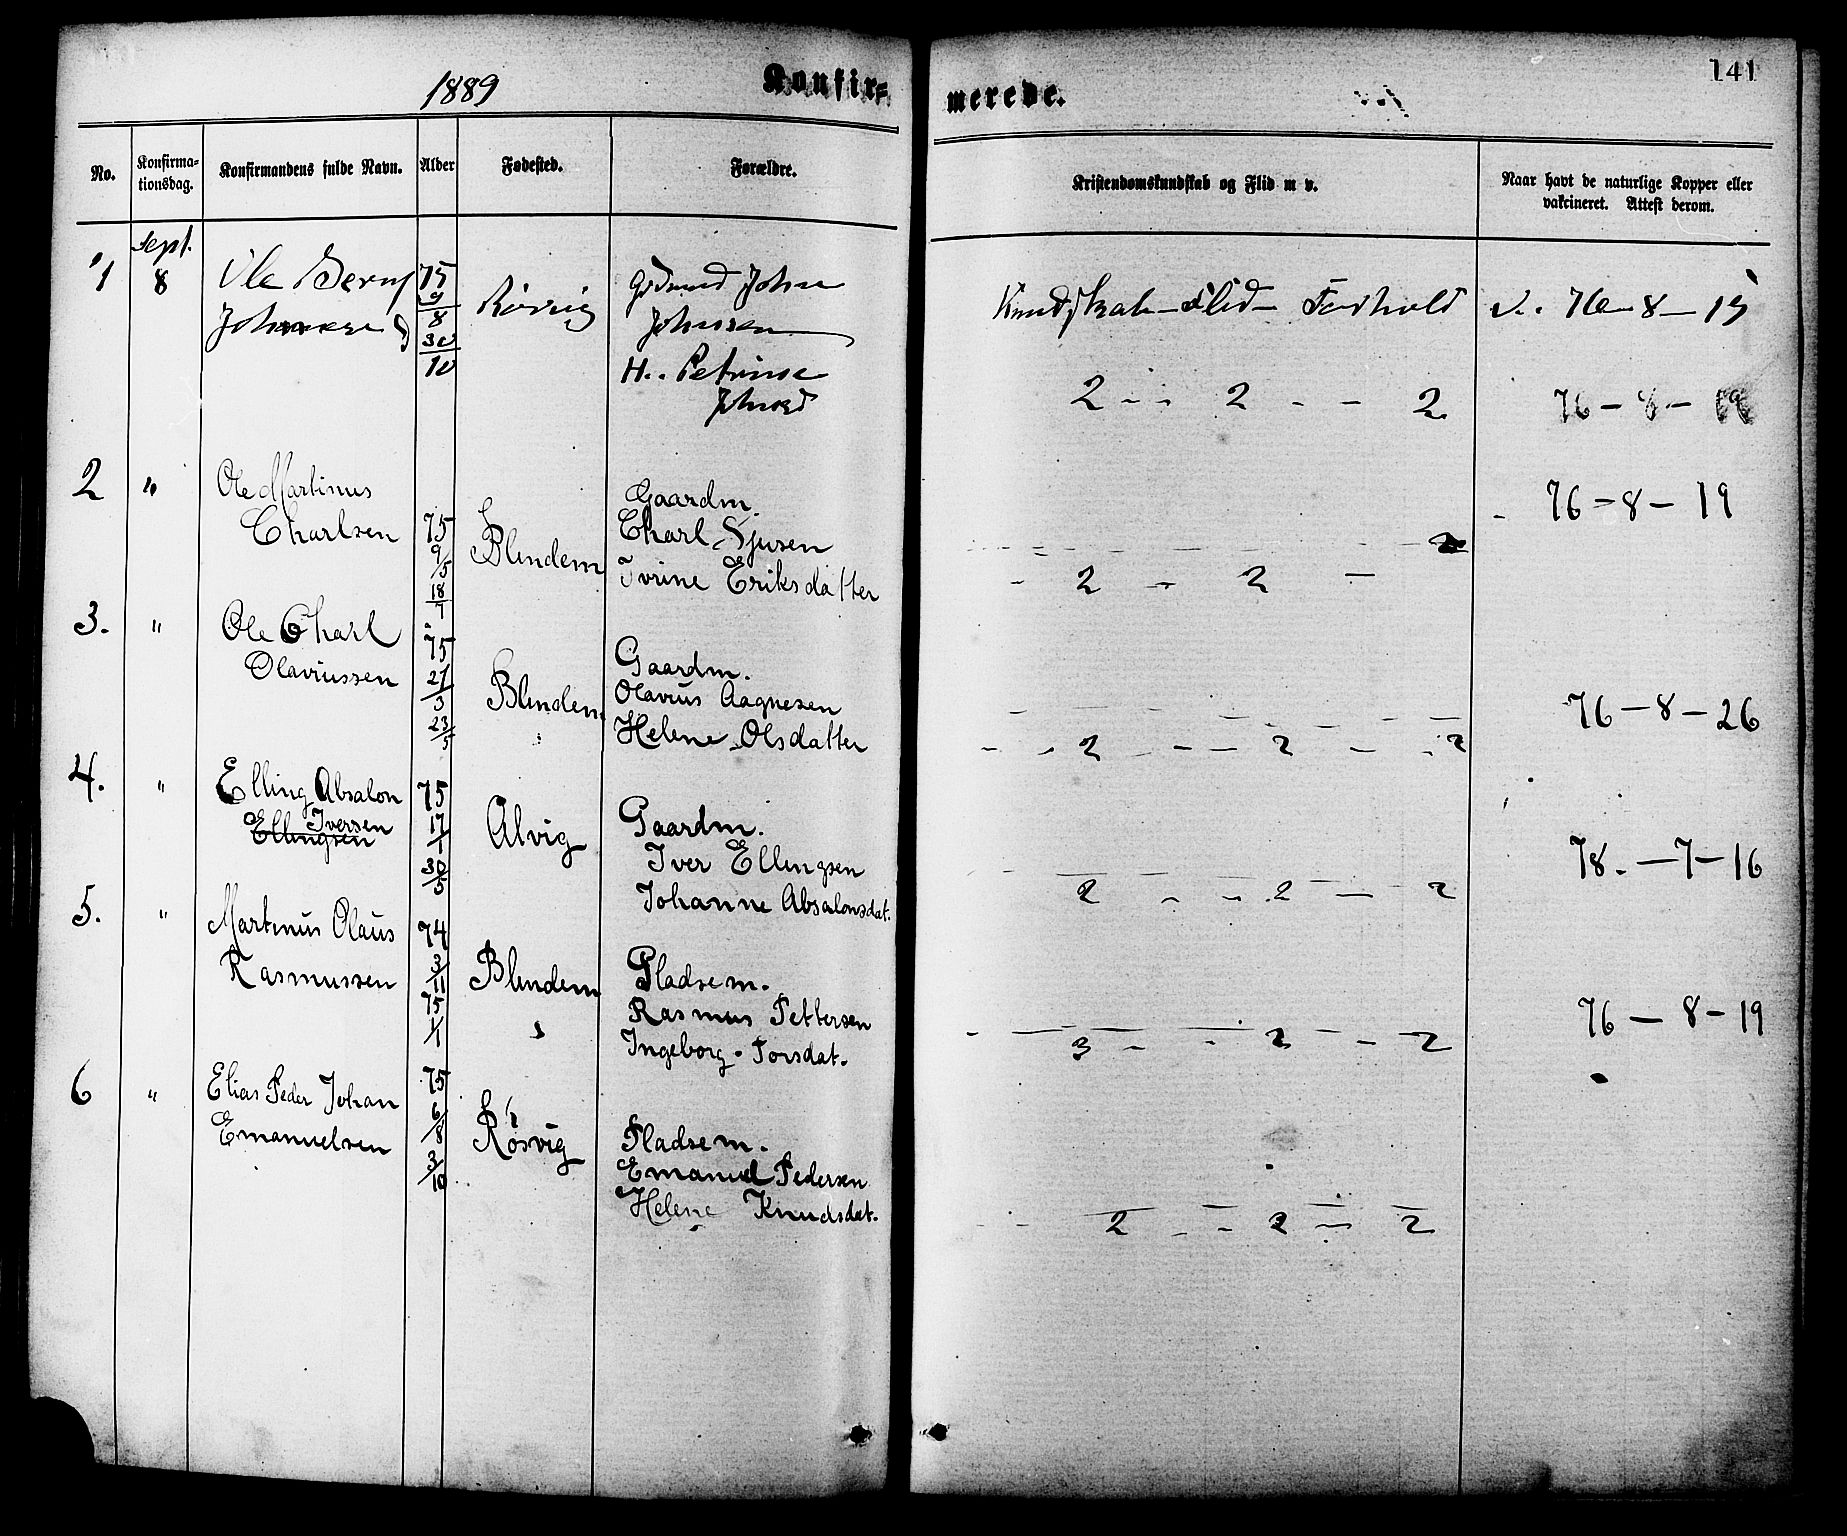 1889
Konfir=
merede.
141
No.
Konfirma-
tionsdag.
Konfirmandens fulde Navn.
Alder
Fødested.
Forældre.
Kristendomskundskab og Flid m v.
Naar havt de naturlige Kopper eller
vakcineret. Attest derom.
1
Sept.
8
Ole
75
9/8
30/10
Røsvig
Johan
Johnsen
H.. Petrine
Kundskab - Flid - Forhold
2 - - 2 - - 2
76 - 8 - 19
2 "
Ole Martinus
Charlsen
75
9/5
18/7
Blindem
Gaardm.
Charl Sjursen
Ivrine Eriksdatter
- 2 - 2 -
76 - 8 - 19
3. "
Ole Charl
Olaviussen
75
27/3
23/5
Blindem
Gaardm.
Olavius Aagnesen
Helene Olsdatter
- - 2 - - 2 - - 2
76 - 8 - 26
4. "
Elling Absalon
Iversen
Ellingsen
75
17/1
30/5
Alvig
Gaardm.
Iver Ellingsen
Johanne Absalonsdat.
2 - - 2 - 2
78. - 7 - 16
5. "
Martinus Olaus
Rasmussen
74
3/11
75
1/1
Blindem
Pladsem.
Rasmus Pettersen
Ingeborg Torsdat.
3 - - 2 - 2
76 - 8 - 19
6 "
Elias Peder Johan
Emanuelsen
75
6/8
3/10
Røsvig
Pladsem.
Emanuel Pedersen
Helene Knudsdat.
2 - - 2 - 2